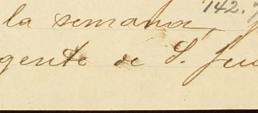 142.
la semana,
gente de S. Ju